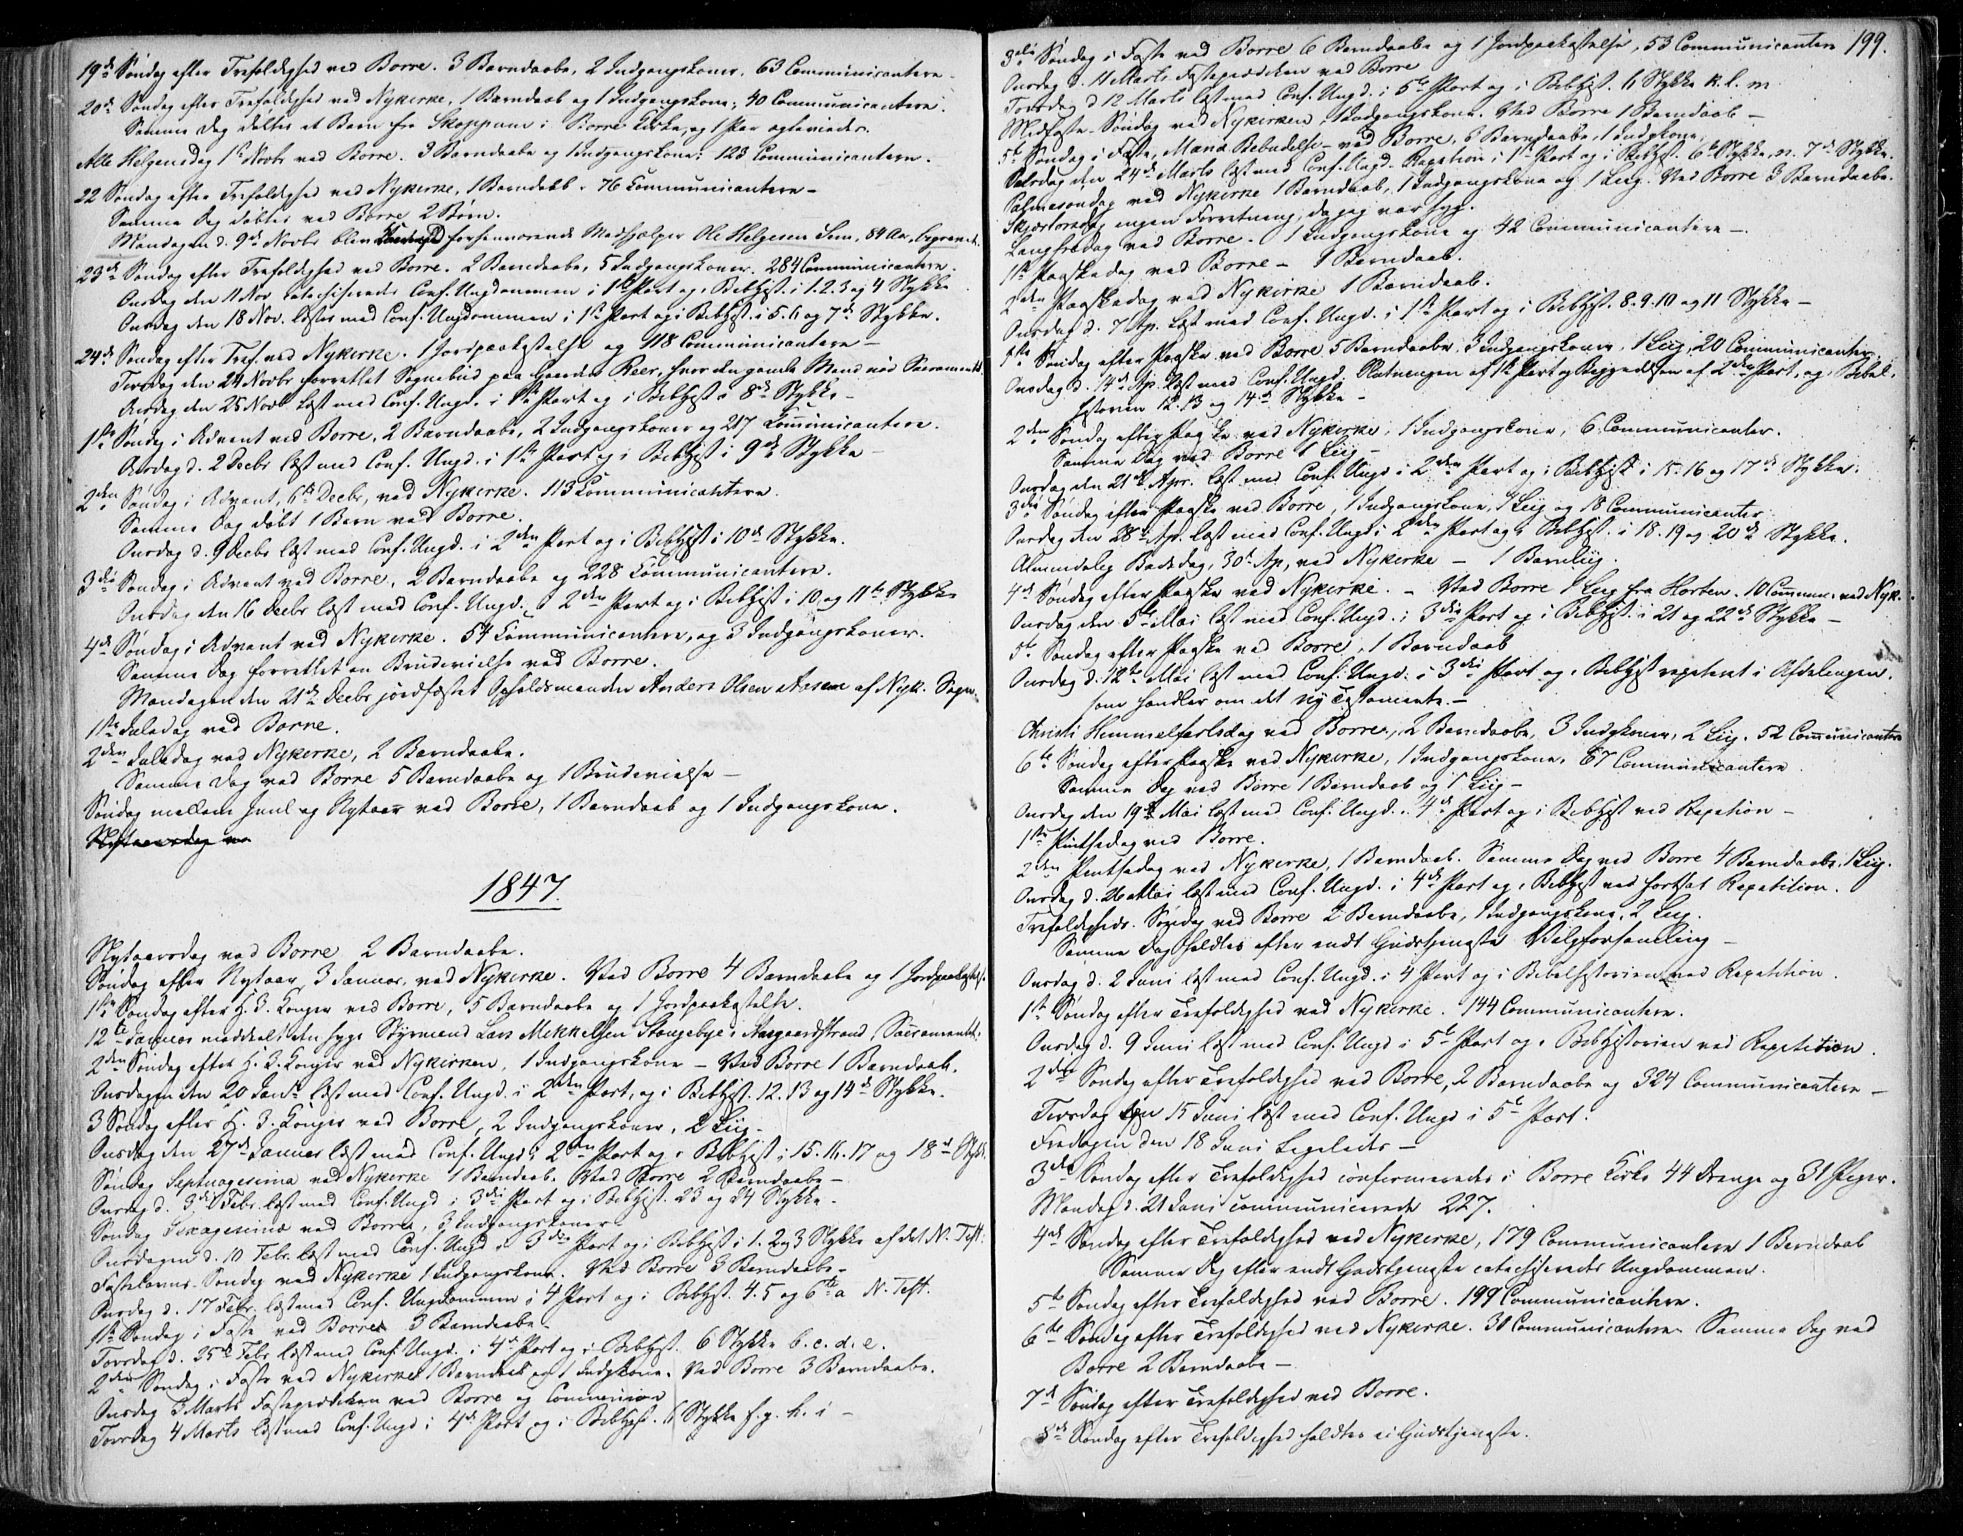 19de Søndag efter Trefoldighed ved Borre. 3 Barndaabe, 2 Indgangskoner, 63 Communicantere.
20de Søndag efter Trefoldighed ved Nykirke, 1 Barndaab og 1 Indgangskone; 40 Communicantere.
Samme Dag døbtes et Barn fra Skoppum i Borre Kirke, og 1 Par ægteviedes.
Alle Helgensdag 1ste Novbr ved Borre. 3 Barndaabe og 1 Indgangskone; 123 Communicantere.
22 Søndag efter Trefoldighed ved Nykirke, 1 Barndaab. 76 Communicantere –
Samme Dag døbtes ved Borre 2 Børn.
Mandagen d. 9de Novbr blev forhenværende Medhjælper Ole Helgesen Sem, 84 Aar, begravet.
23de Søndag efter Trefoldighed ved Borre. 2 Barndaabe, 5 Indgangskoner. 284 Communicantere.
Onsdag den 11 Nov. catechiseredes Conf. Ungdommen i 1ste Part og i Bibhist. i 1. 2. 3 og 4 Stykke
Onsdag den 18 Nov. læstes med Conf. Ungdommen i 1ste Part og i Bibhist. i 5. 6 og 7de Stykke.
24de Søndag efter Tref. ved Nykirke. 1 Jordpaakastelse og 118 Communicantere –
Tirsdag den 24 Novbr forrettet Sognebud paa Gaarden Reer, hvor den gamle Mand nød Sacramentet.
Onsdag den 25 Novbr læst med Conf. Ungd. i 1ste Part og i Bibhist. i 8de Stykke –
1ste Søndag i Advent ved Borre. 2 Barndaabe, 2 Indgangskoner og 217 Communicantere.
Onsdag d. 2 Decbr læst med Conf. Ungd. i 1ste Part og i Bibhist. i 9de Stykke –
2den Søndag i Advent, 6te Decbr, ved Nykirke. 113 Communicantere.
Samme Dag døbt 1 Barn ved Borre.
Onsdag d. 9 Decbr læst med Conf. Ungd. i 2den Part og i Bibhist. i 10de Stykke.
3die Søndag i Advent ved Borre. 2 Barndaabe og 228 Communicantere.
Onsdag den 16 Decbr læst med Conf. Ungd. i 2den Part og i Bibhist. i 10 og 11te Stykke
4de Søndag i Advent ved Nykirke. 54 Communicantere, og 3 Indgangskoner.
Samme Dag forrettet en Brudevielse ved Borre.
Mandagen den 21de Decbr jordfæstet Opholdsmanden Anders Olsen Aasen af Nyk. Sogn.
1ste Juledag ved Borre.
2den Juledag ved Nykirke, 2 Barndaabe.
Samme Dag ved Borre 5 Barndaabe og 1 Brudevielse –
Søndag mellem Juul og Nytaar ved Borre, 1 Barndaab og 1 Indgangskone.
Nytaarsdag ve
1847.
Nytaarsdag ved Borre 2 Barndaabe.
Søndag efter Nytaar, 3 Januar, ved Nykirke. Ved Borre 4 Barndaabe og 1 Jordpaakastelse.
1ste Søndag efter H. 3. Konger ved Borre, 5 Barndaabe og 1 Jordpaakastelse.
12te Januar meddeelt den syge Styrmand Lars Mikkelsen Stangebye i Aasgaardstrand Sacramentet.
2den Søndag efter H. 3. Konger ved Nykirken, 1 Indgangskone – Ved Borre 1 Barndaab.
Onsdagen den 20 Janr. læst med Conf. Ungd. i 2den Part, og i Bibhist. 12. 13 og 14de Stykke.
3 Søndag efter H. 3. Konger ved Borre, 2 Indgangskoner, 2 Liig.
Onsdag den 27de Januar læst med Conf. Ungd. i 2den Part og i Bibhist. i 15. 16. 17 og 18de Stykke.
Søndag Septuagesima ved Nykirke 1 Barndaab. Ved Borre 2 Barndaabe –
Onsdag d. 3die Febr. læst med Conf. Ungd. i 3die Part og i Bibhist. 23 og 24 Stykke.
Søndag Sexagesima ved Borre, 3 Indgangskoner
Onsdagen d. 10 Febr. læst med Conf. Ungd. i 3die Part og i Bibhist. i 1. 2 og 3 Stykke af det N. Test.
Fastelavns-Søndag ved Nykirke 1 Indgangskone. Ved Borre 3 Barndaabe –
Onsdag d. 17 Febr. læst med Conf. Ungdommen i 4 Part og i Bibhist. 4. 5 og 6te a N. Test.
1ste Søndag i Faste ved Borre 3 Barndaabe –
Torsdag d. 25de Febr. læst med Conf. Ungd. i 4de Part og i Bibhist. 6 Stykke b. c. d. e.
2den Søndag i Faste ved Nykirke 1 Barndaab og 1 Indgkone. Ved Borre 3 Barndaabe.
Onsdag 3 Marts Fasteprædiken ved Borre og Communion
Torsdag 4 Marts læst med Conf. Ungd. i 4de Part og i Bibhist. 6 Stykke f. g. h. i –
199.
3die Søndag i Faste ved Borre 6 Barndaabe og 1 Jordpaakastelse, 53 Communicantere
Onsdag d. 11 Marts Fasteprædiken ved Borre
Torsdag d. 12 Marts læst med Conf. Ungd. i 5te Part og i Bibhist. 6 Stykke k. l. m
Midfaste-Søndag ved Nykirken, 1 Indgangskone. Ved Borre 1 Barndaab –
5te Søndag i Faste, Mariæ Bebudelse – ved Borre, 6 Barndaabe, 1 Indgkone.
Onsdag den 24de Marts læst med Conf. Ungd. Repetition i 1ste Part og i Bibhist. 6te Stykke, n. 7de Stykke.
Palmesøndag ved Nykirke 1 Barndaab, 1 Indgangskone og 1 Liig. Ved Borre 3 Barndaabe.
Skjærtorsdag ingen Forretning, da jeg var syg.
Langfredag ved Borre. 1 Indgangskone og 42 Communicantere –
1ste Paaskedag ved Borre – 1 Barndaab.
2den Paaskedag ved Nykirke 1 Barndaab.
Onsdag d. 7 Ap. læst med Conf. Ungd. i 1ste Part og i Bibhist. 8. 9. 10 og 11 Stykke –
1ste Søndag efter Paaske ved Borre 5 Barndaabe, 3 Indgangskoner, 1 Liig, 20 Communicanter
Onsdag d. 14de Ap. læst med Conf. Ungd. Slutningen af 1ste Part og Begyndelsen af 2den Part, og i Bibel-
historien 12. 13 og 14de Stykke –
2den Søndag efter Paaske ved Nykirke, 1 Indgangskone, 6 Communicanter.
Samme Dag ved Borre 1 Liig –
Onsdag den 21de Apr. læst med Conf. Ungd. i 2den Part og i Bibhist. i 15. 16 og 17de Stykke.
3die Søndag efter Paaske ved Borre, 1 Indgangskone, 1 Liig og 18 Communicanter
Onsdag den 28de Ap. læst med Conf. Ungd. i 2den Part og i Bibhist. i 18. 19 og 20de Stykke.
Almindelig Bededag, 30te Ap, ved Nykirke – 1 Barnliig.
4de Søndag efter Paaske ved Nykirke. – Ved Borre 1 Liig fra Horten. 10 Commun. ved Nyk.
Onsdag den 5te Mai læst med Conf. Ungd. i 3die Part og i Bibhist. i 21 og 22de Stykke –
5te Søndag efter Paaske ved Borre, 1 Barndaab
Onsdag d. 12te Mai læst med Conf. Ungd. i 3die Part og i Bibhist. repeteret i Afdelingen,
som handler om det ny Testamente. –
Christi Himmelfartsdag ved Borre, 2 Barndaabe, 3 Indgkoner, 2 Liig. 52 Communicantere
6te Søndag efter Paaske ved Nykirke, 1 Indgangskone, 67 Communicantere
Samme Dag ved Borre 1 Barndaab og 1 Liig –
Onsdag den 19de Mai læst med Conf. Ungd. i 4de Part og i Bibhist. ved Repetion –
1ste Pintsedag ved Borre.
2den Pintsedag ved Nykirke, 1 Barndaab. Samme Dag ved Borre 4 Barndaabe, 1 Liig.
Onsdag d. 26 Mai læst med Conf. Ungd. i 4de Part og i Bibhist. ved fortsat Repetition.
Trefoldigheds-Søndag ved Borre 2 Barndaabe, 1 Indgangskone, 2 Liig.
Samme Dag holdtes efter endt Gudstjeneste Valgforsamling –
Onsdag d. 2 Juni læst med Conf. Ungd. i 4 Part og i Bibelhistorien ved Repetition.
1ste Søndag efter Trefoldighed ved Nykirke. 144 Communicantere.
Onsdag d. 9 Juni læst med Conf. Ungd. i 5te Part og i Bibhistorien ved Repetition.
2den Søndag efter Trefoldighed ved Borre, 2 Barndaabe og 324 Communicantere –
Tirsdag den 15 Juni læst med Conf. Ungd. i 5te Part.
Fredagen den 18 Juni ligeledes –
3die Søndag efter Trefoldighed confirmeredes i Borre Kirke 44 Drenge og 31 Piger.
Mandag d. 21 Juni communicerede 227.
4de Søndag efter Trefoldighed ved Nykirke, 179 Communicantere 1 Barndaab
Samme Dag efter endt Gudstjeneste catechiseredes Ungdommen.
5te Søndag efter Trefoldighed ved Borre. 199 Communicantere.
6te Søndag efter Trefoldighed ved Nykirke. 30 Communicantere. Samme Dag ved
Borre 2 Barndaabe –
7de Søndag efter Trefoldighed ved Borre.
8de Søndag efter Trefoldighed holdtes ei Gudstjeneste.